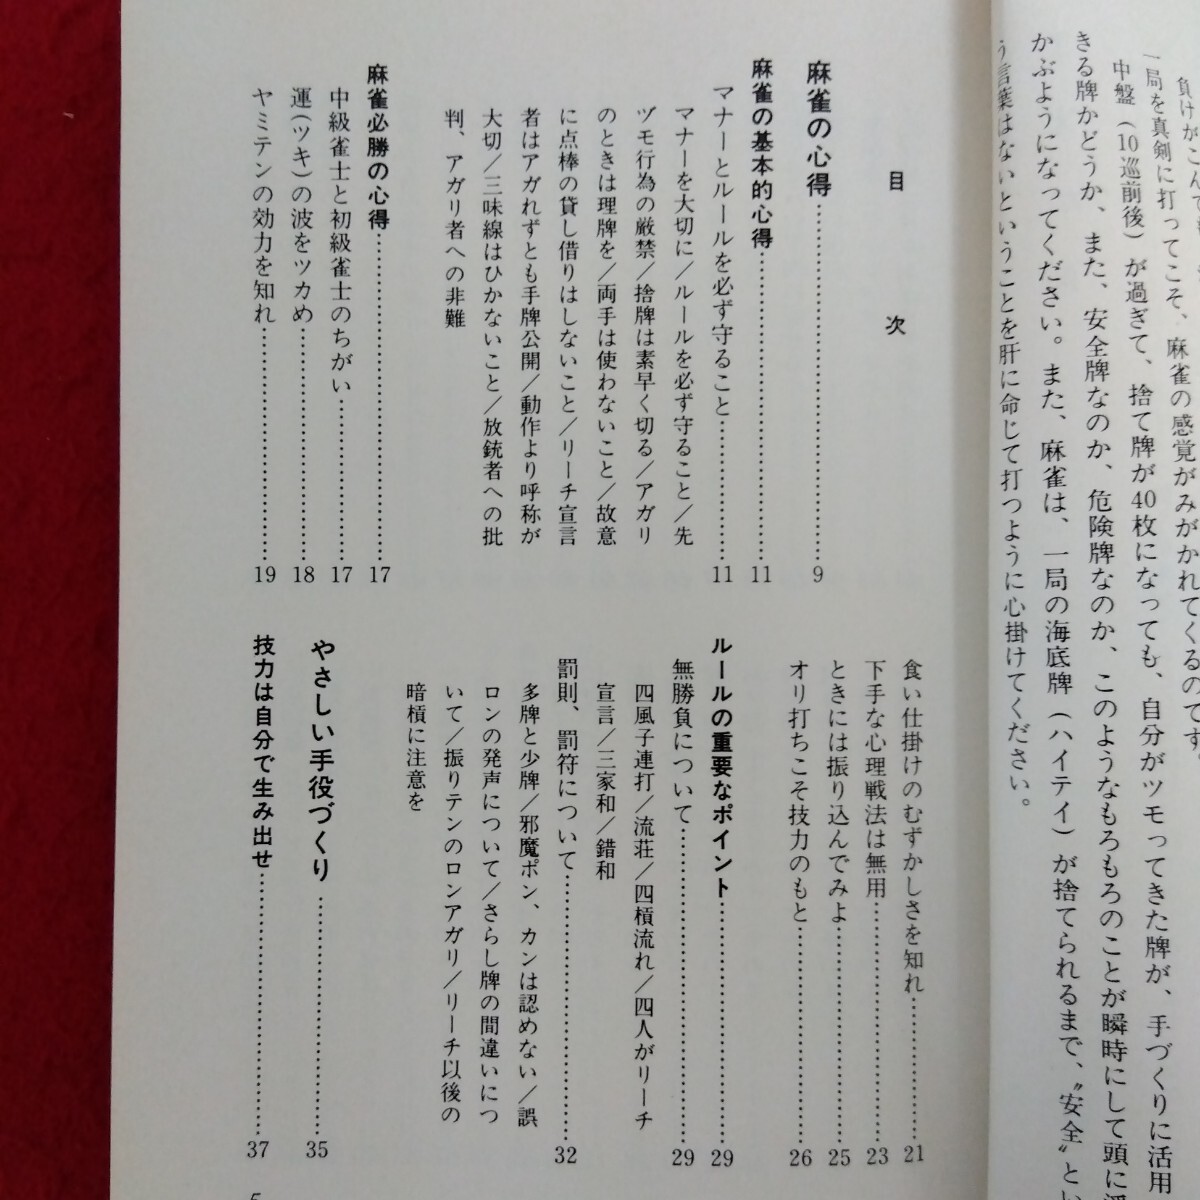 負けがこんで
一局を真剣に打ってこそ、麻雀の感覚がみがかれてくるのです。
中盤（10巡前後）が過ぎて、捨て牌が40枚になっても、自分がツモってきた牌が、手づくりに活用
きる牌かどうか、また、安全牌なのか、危険牌なのか、このようなもろもろのことが瞬時にして頭に浮
かぶようになってください。また、麻雀は、一局の海底牌（ハイテイ）が捨てられるまで、〝安全〟とい
う言葉はないということを肝に命じて打つように心掛けてください。
目次
麻雀の心得……………9
麻雀の基本的心得……………11
マナーとルールを必ず守ること……………11
マナーを大切に／ルールを必ず守ること／先
ヅモ行為の厳禁／捨牌は素早く切る／アガリ
のときは理牌を／両手は使わないこと／故意
に点棒の貸し借りはしないこと／リーチ宣言
者はアガれずとも手牌公開／動作より呼称が
大切／三味線はひかないこと／放銃者への批
判、アガリ者への非難
麻雀必勝の心得……………17
中級雀士と初級雀士のちがい……………17
運（ツキ）の波をツカめ……………18
ヤミテンの効力を知れ……………19
食い仕掛けのむずかしさを知れ……………21
下手な心理戦法は無用……………23
ときには振り込んでみよ……………25
オリ打ちこそ技力のもと……………26
ルールの重要なポイント……………29
無勝負について……………29
四風子連打／流荘／四槓流れ／四人がリーチ
宣言／三家和／錯和
罰則、罰符について……………32
多牌と少牌／邪魔ポン、カンは認めない／誤
ロンの発声について／さらし牌の間違いにつ
いて／振りテンのロンアガリ／リーチ以後の
暗槓に注意を
やさしい手役づくり……………35
技力は自分で生み出せ……………37
5